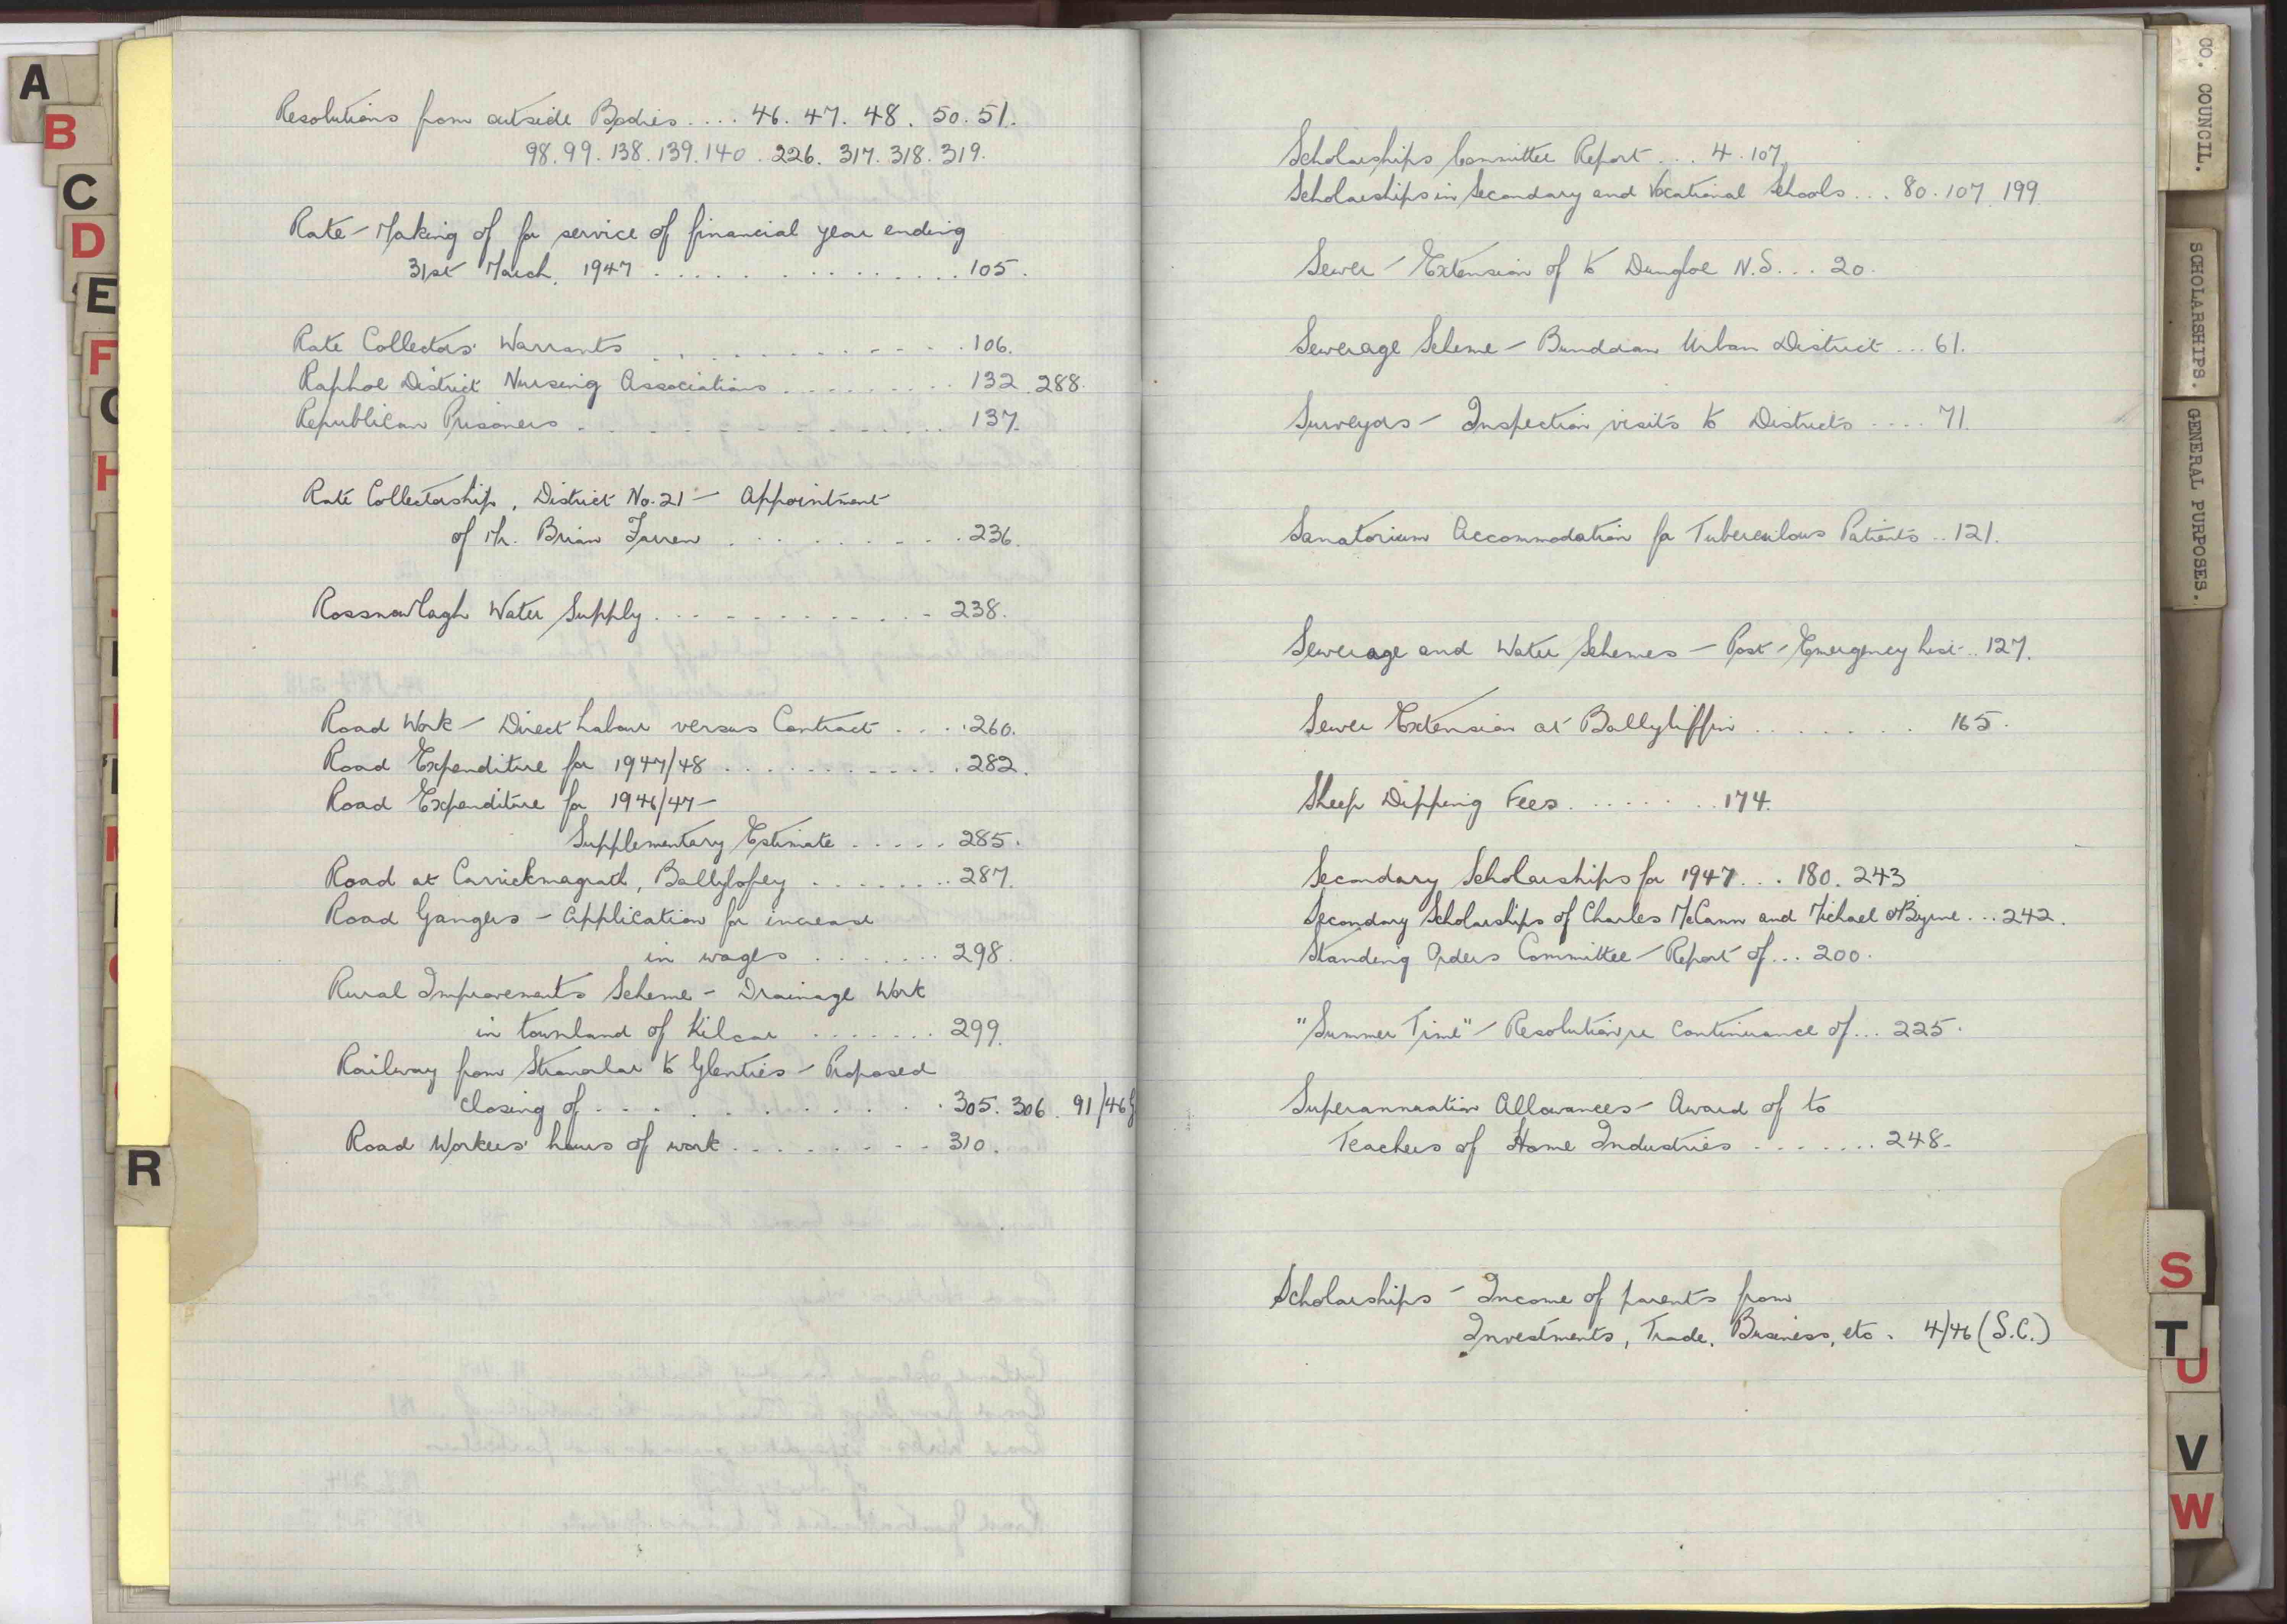 Resolutions from outside Bodies .... 46. 47. 48. 50. 51.
98. 99. 138. 139. 140. 226. 317. 318. 319.
Rate - Making of for service of financial year ending
31st March, 1947 ............... 105.
Rate Collectors' Warrants ........... 106.
Raphoe District Nursing Associations ......... 132. 288.
Republican Prisoners ............. 137.
Rate Collectorship, District No. 21 - Appointment
of Mr. Brian Farren ......... 236.
Rossnowlagh Water Supply ............ 238.
Road Work - Direct Labour versus Contract .... 260.
Road Expenditure for 1947/48 ............ 282.
Road Expenditure for 1946/47 -
Supplementary Estimate ..... 285.
Road at Carrickmagrath, Ballybofey ........ 287.
Road Gangers - Application for increase
in wages ....... 298.
Rural Improvements Scheme - Drainage Work
in townland of Kilcar ....... 299.
Railway from Stranorlar to Glenties - Proposed
closing of ............ 305. 306. 91/46G
Road Workers' hours of work ........ 310.
Scholarships Committee Report ... 4. 107.
Scholarships in Secondary and Vocational Schools ... 80. 107. 199
Sewer - Extension of to Dungloe N.S. ... 20.
Sewerage Scheme - Bundoran Urban District ... 61.
Surveyors - Inspection visits to Districts .... 71.
Sanatorium Accommodation for Tuberculous Patients .. 121.
Sewerage and Water Schemes - Post-Emergency List .. 127.
Sewer Extension at Ballyliffin ....... 165.
Sheep Dipping Fees ....... 174.
Secondary Scholarships for 1947 ... 180. 243
Secondary Scholarships of Charles McCann and Michael O'Byrne ... 242.
Standing Orders Committee - Report of ... 200.
"Summer Time" - Resolution re continuance of ... 225.
Superannuation Allowances - Award of to
Teachers of Home Industries ....... 248.
Scholarships - Income of parents from
Investments, Trade, Business, etc. 4/46 (S.C.)
A
B
C
D
E
F
H
R
CO. COUNCIL.
SCHOLARSHIPS.
GENERAL PURPOSES.
S
T
U
V
W